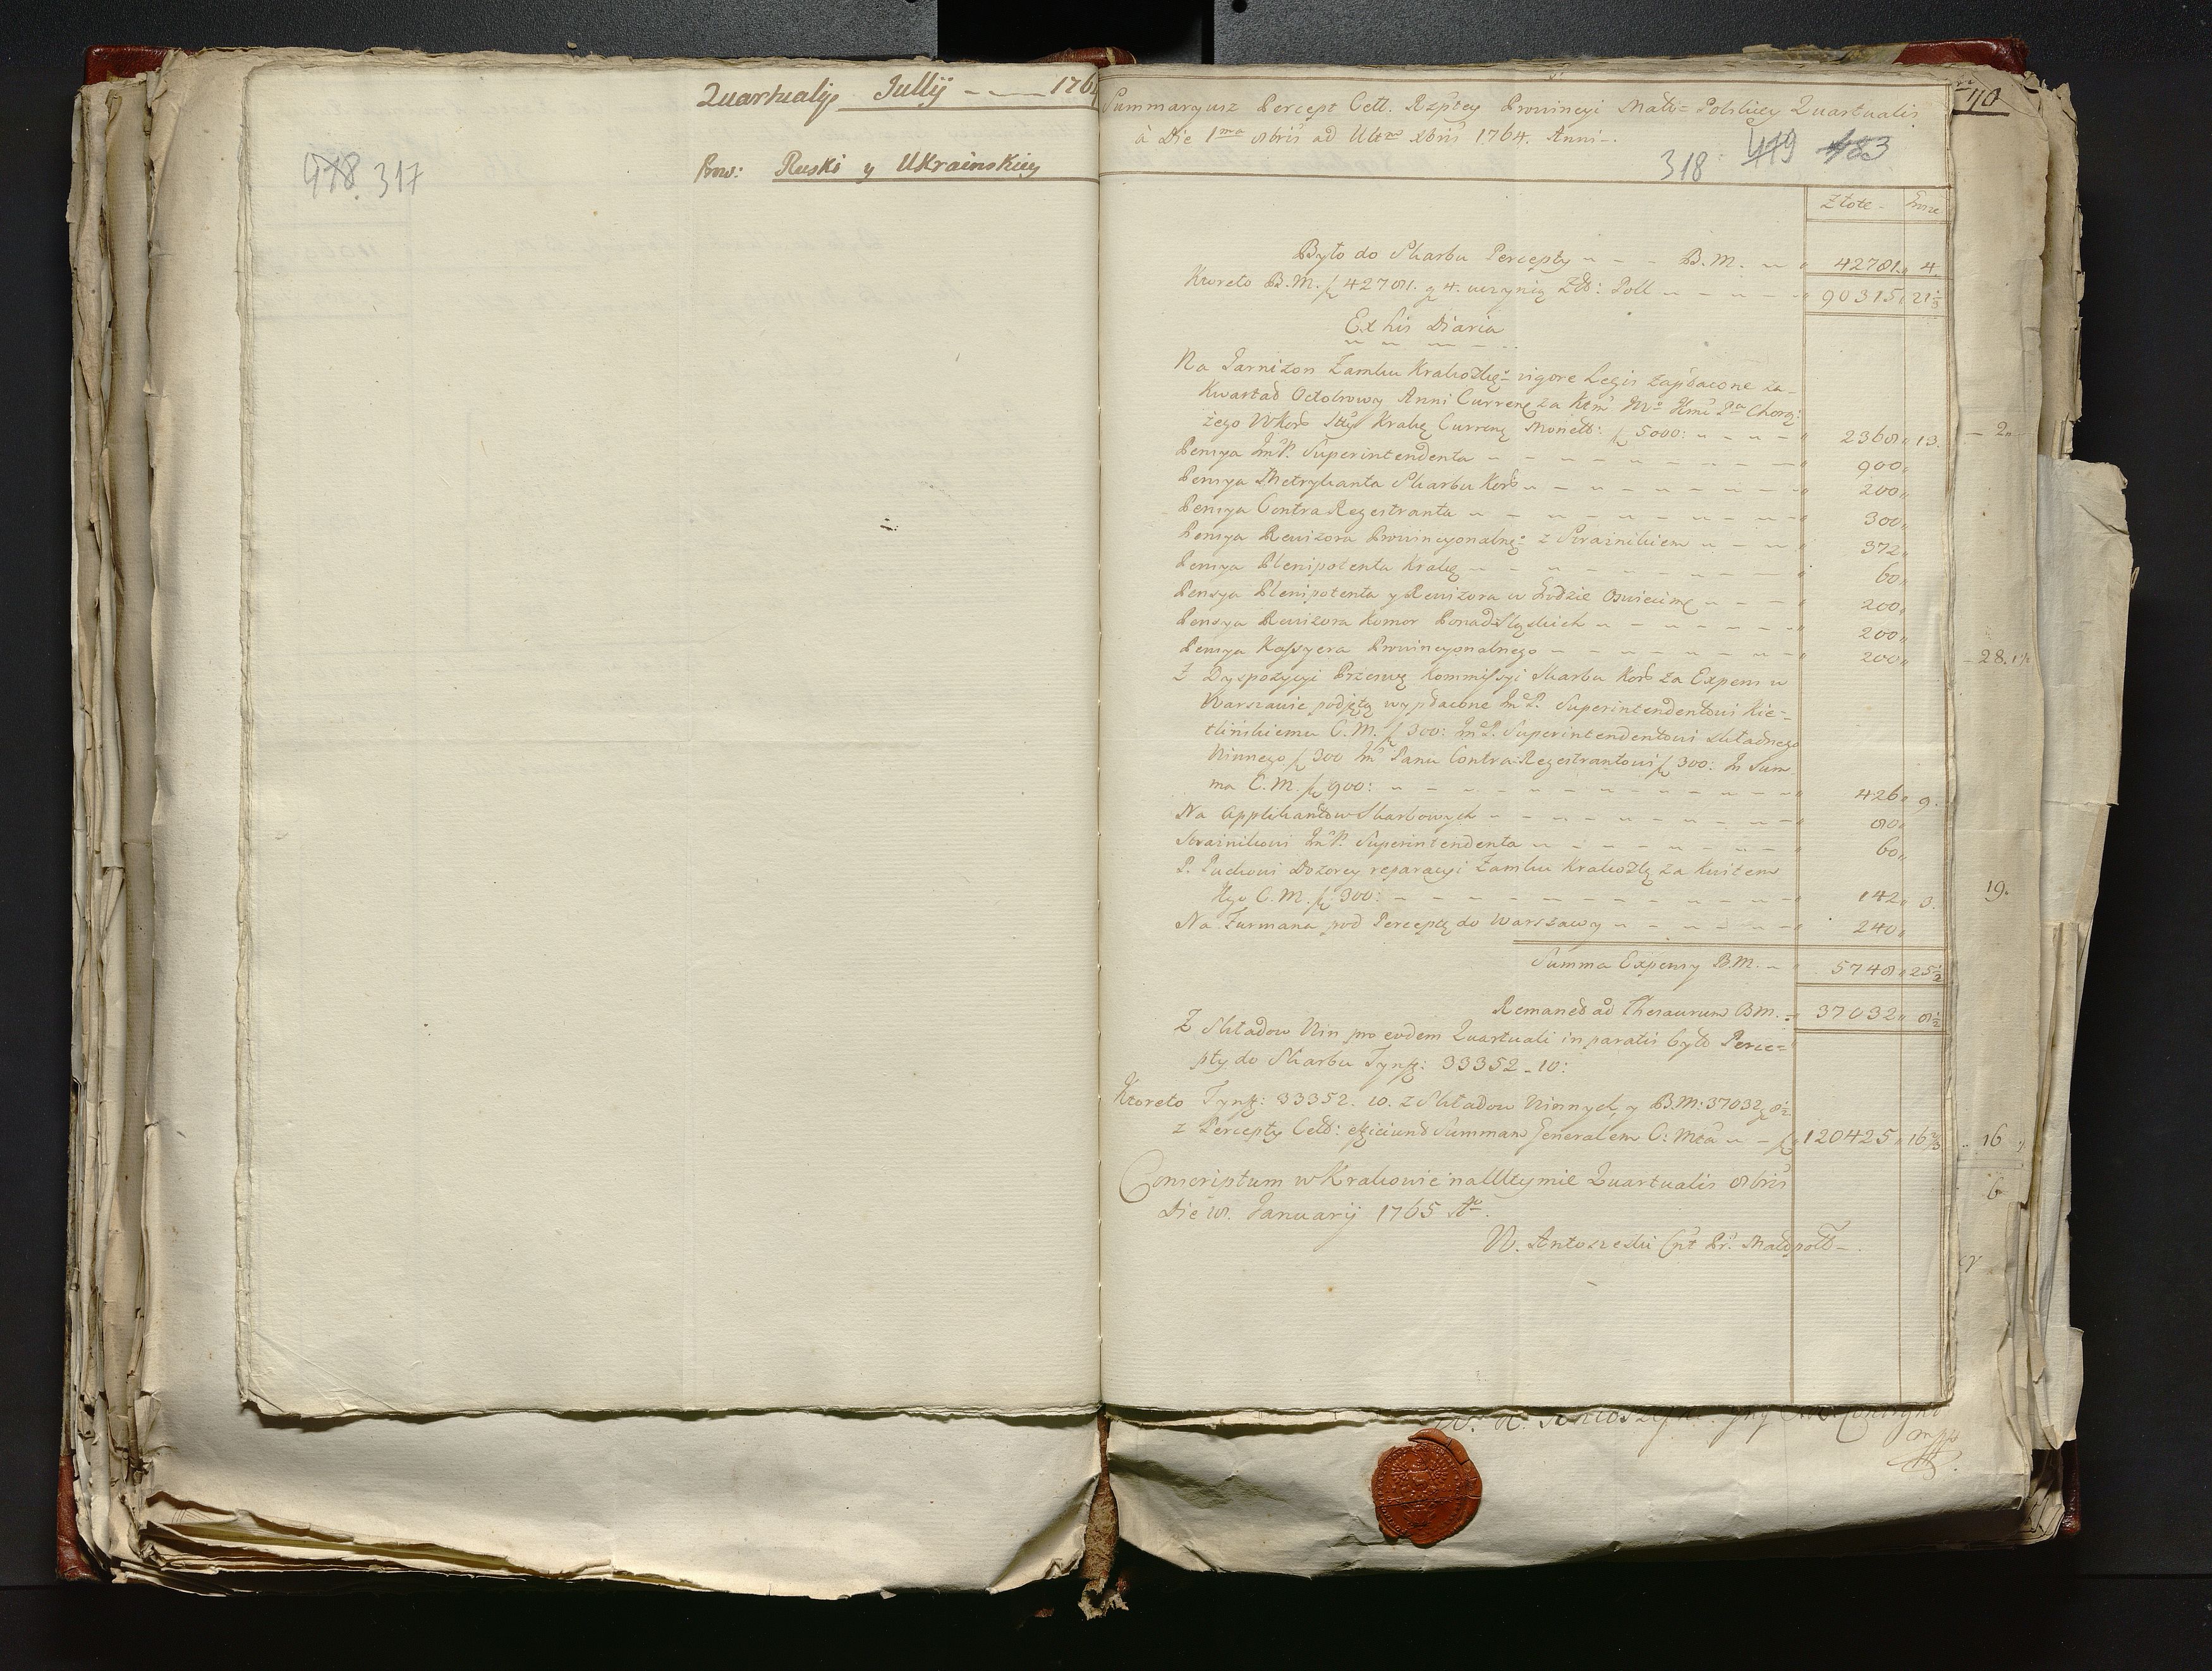 Quartualis Julij - - 176
478. 317
Prow: Ruski y Ukrainskiey
Summaryusz Percept Cell. Rzptey Prowincyi Mało=Polskiey Quartualis
à Die 1ma 8bris ad Ultm Xbris 1764. Anni.
318 479 483
70
Złote - Grosze
Było do Skarbu Percepty - - - B.M. - 42781. 4.
Ktoreto B.M. f 42781. g 4. uczynią Zło: Poll - - - 90315. 21 1/3
Ex his Diaria
Na Garnizon Zamku Krakowskgo vigore Legis zapłacone za
Kwartał Octobrowy Anni Curren za Ktm Chorą:
żego Woysk Kraku Curren Monett: f 5000: - - - 2368. 13.
Pensya JmP. Superintendenta - - - 900.
Pensya Metrykanta Skarbu Koro - - - 200.
Pensya Contra Regestranta - - - 300.
Pensya Rewizora Prowincyonalnego z Strażnikiem - - - 372.
Pensya Plenipotenta Krakg - - - 60.
Pensya Plenipotenta y Rewizora w Grodzie Oswiecim - - - 200.
Pensya Rewizora Komor Ponad Sląskich - - - 200.
Pensya Kassyera Prowincyonalnego - - - 200.
Z Dyspozycyi Przeswę Kommissyi Skarbu Koro za Expens w
Warszawie podjętą wypłacone JmP. Superintendentowi Kie=
tlińskiemu C.M. f 300: JmP. Superintendentowi Składnego
Winnego f 300 Jm Panu Contra Regestrantowi f 300: In Sum
ma C.M. f 900: - - - 426. 9.
Na Applikantow Skarbowych - - - 80.
Strażnikowi JmP. Superintendenta - - - 60.
P. Puckowi Dozorcy reparacyi Zamku Krakowskg za Kwitem
Jego C.M. f 300: - - - 142. 3.
Na Furmana pod Perceptę do Warszawy - - - 240.
Summa Expensy B.M. - 5748. 25 1/2
Remanet ad Thesaurum B.M. - 37032. 8 1/2
Z Składow Win pro eodem Quartuali in paratis było Perce=
pty do Skarbu Tynf: 33352 - 10:
Ktoreto Tynf: 33352. 10. z Składow Winnych, y B.M: 37032 g 8 1/2
z Percepty Cell: efficiunt Summam Generalem C: Mta - f 120425. 16 2/3
Conscriptum w Krakowie na Ultymie Quartualis 8bris
Die 10. January 1765 Ao.
W. Antoszeski Cnt Pr. Małopoll
2.
28.
19.
16
6
mpp